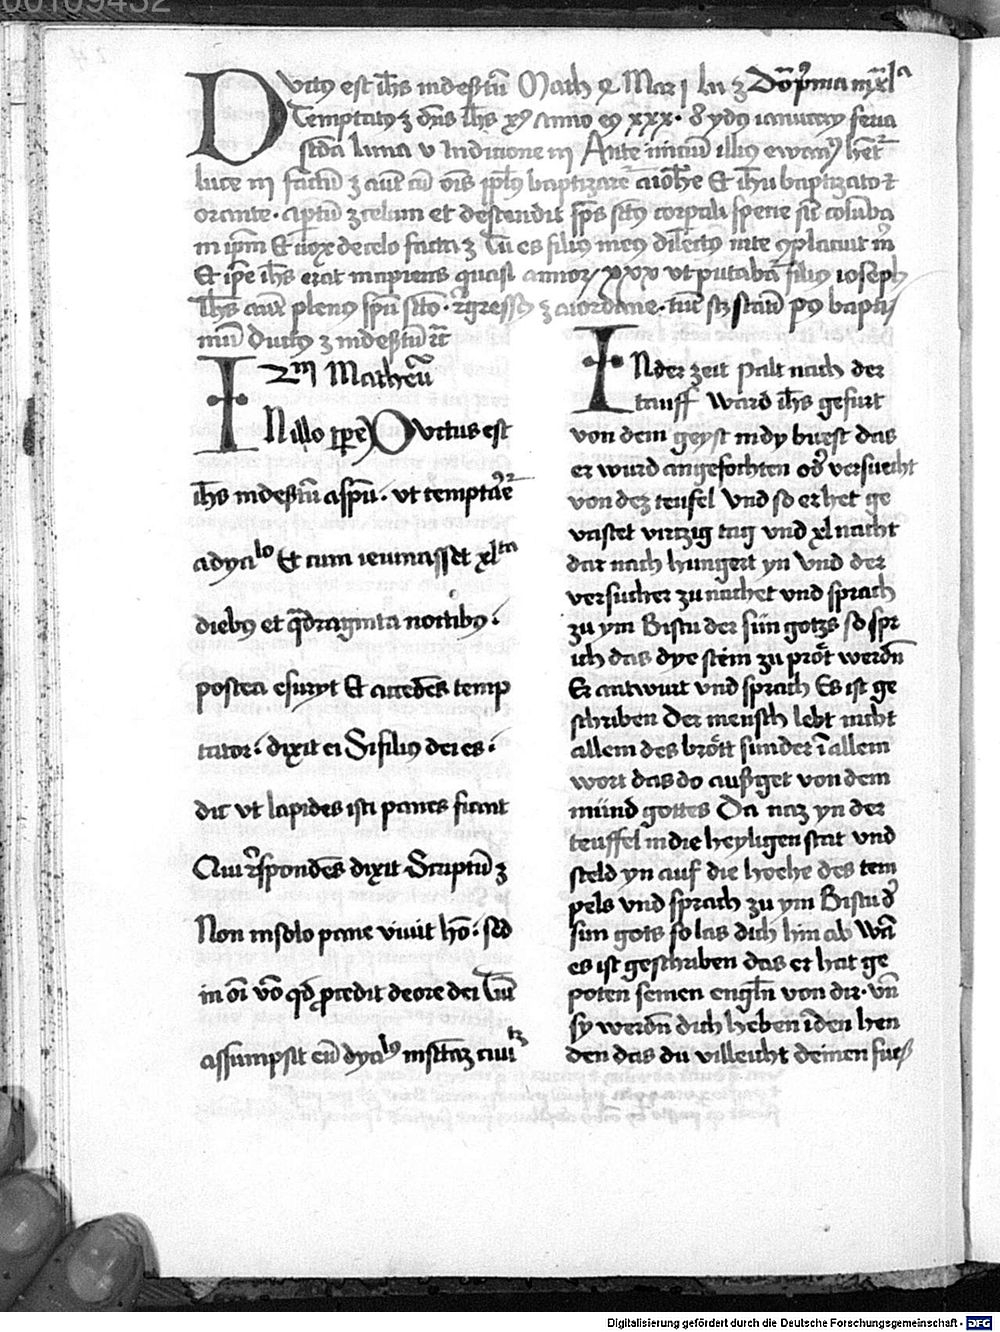 00109432
Ductus est ihs in desertū Math 4 Mar j Lu 3 Dōᵃ prima in xlᵃ
Temptatꝰ ꝫ dn̄s ihs xp̄s Anno eꝰ xxx. 8 ydꝰ ianuarij feria
scd̄a luna v Indictione iij Ante initiū illiꝰ ewanᵍ het̄ᵉ
luce iij factū ꝫ aūt cū om̄s pplꝰ baptizaret᷑ a ioh̄e Et ihū baptizato ⁊
orante. aptū ꝫ celum et descendit sp̄s sc̄tꝰ corpali specie sic̄ colūba
in ip̄m Et uox de celo facta ꝫ Tu es filiꝰ meꝰ dilectꝰ in te ꝯplacuit m̄
Et ip̄e ihs erat incipiens quasi annoꝝ xxx vt putabat᷑ filiꝰ ioseph
Ihs aūt plenꝰ sp̄u sc̄to. r̄gressꝰ ꝫ a iordane. tūc scꝫ statī pꝰ baptis
mū Ductꝰ ꝫ in desertū ⁊c̄
2m Matheū
In illo tpe Ductus est
ihs in desertū a sp̄u. vt temptaret᷑
a dyabᵒlo Et cum ieiunasset xlᵗᵃ
diebꝰ et quadraginta noctibꝰ.
postea esuryt Et accedēs temp
tator. dixit ei Si filiꝰ dei es.
dic vt lapides isti panes fiant
Qui r̄spondēs dixit Scriptū ꝫ
Non in solo pane viuit hō. sed
in om̄i v̄bo qd̄ ꝓcedit de ore dei Tūc
assumpsit eū dyabᵒlꝰ in sc̄taꝫ ciuitᵗᵉ
In der zeit palt nach der
tauff ward ihs gefurt
von dem geyst in dy wuest das
er wurd angefochten od̄ versuecht
von deꝫ teufel vnd so er het ge
vastet virtzig tag vnd xl nacht
dar nach hungert yn vnd der
versucher zu nachet vnd sprach
zu ym Bistu der sün gotzs so spr
ich das dye stein zu prött werdn̄
Er antwurt vnd sprach Es ist ge
schriben Der mensch lebt nicht
allein des brött sunder ī allem
wort das do außget von dem
münd gottes Da naꝫ yn der
teuffel in die heyligen stat vnd
steld yn auf die hoche des tem
pels vnd sprach zu ym Bistu d̄
sun gots so las dich hin ab Wā
es ist geschriben das er hat ge
poten seinen engln̄ von dir. vn̄
sy werdn̄ dich heben ī den hen
den das du villeicht deinen fueß
Digitalisierung gefördert durch die Deutsche Forschungsgemeinschaft - DFG